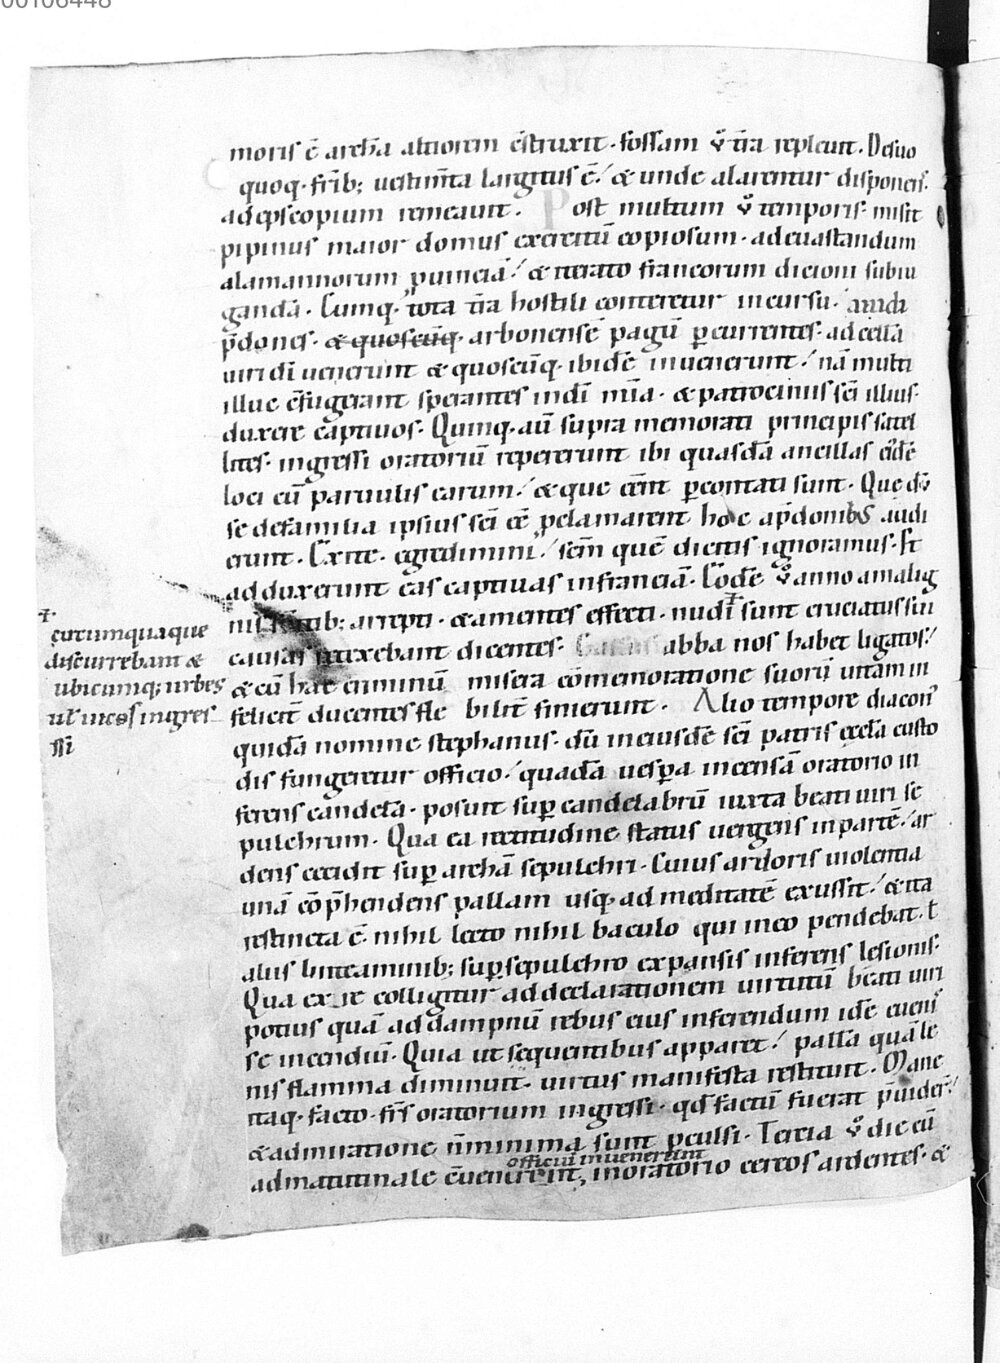 00106448
moris ē archā altiorem c̄struxit. fossam v̊ t̄ra repleuit. De suo
quoq. fr̄ib; uestim̄ta largitus ē / & unde alarentur disponens.
ad ep̄scopium remeauit. Post multum v̊ temporis. misit
pipinus maior domus exercitū copiosum. ad euastandum
alamannorum puinciā / & iterato francorum dicioni subiu
gandā. Cumq. tota t̄ra hostili contereretur incursu. auidi
p̄dones. & quoscūq. arbonensē pagū ꝑcurrentes. ad cellā
uiri dī uenerunt & quoscūq. ibidē inuenerunt / nā multi
illuc c̄fugerant sperantes in dī m̄ia. & patrocinus sc̄i illius.
duxere captiuos. Quinq. aū supra memorati principis satel
lites. ingressi oratoriū repererunt ibi quasdā ancillas eidē
loci cū paruulis earum / & que eēnt ꝑcontati sunt. Que dū
se de familia ipsius sc̄i eē ꝓclamarent hoc a p̄donibus audi
erunt. Exite. egredimini / sc̄m quē dicitis ignoramus. Et
adduxerunt eas captiuas in franciā. Eodē v̊ anno a malig
nis sp̄itib; arrepti. & amentes effecti. nudi sunt cruciatus sui
causas retexebant dicentes. abba nos habet ligatos /
& cū hac criminū misera cōmemoratione suorū uitam in
felicit̄ ducentes fle bilit̄ finierunt. Alio tempore diacon̄
quidā nomine stephanus. dū in eiusdē sc̄i patris eccl̄a custo
dis fungeretur officio / quadā uesꝑa incensā oratorio in
ferens candelā. posuit suꝑ candelabrū iuxta beati uiri se
pulchrum. Qua ea rectitudine status uergens in partē / ar
dens cecidit suꝑ archā sepulchri. Cuius ardoris uiolentia
unā cōp̄hendens pallam usq. ad meditatē exussit / & ita
restincta ē. nihil lecto nihil baculo qui in eo pendebat. t̄
alus linteaminib; suꝑ sepulchro expansis inferens lesionis.
Qua ex re colligitur ad declarationem uirtutū beati uiri
potius quā ad dampnū rebus eius inferendum idē euenis
se incendiū. Quia ut sequentibus apparet / pallā quā le
nis flamma diminuit. uirtus manifesta restituit. Mane
itaq. facto. fr̄s oratorium ingressi. qd̄ factū fuerat p̄uider̄ /
& admiratione n̄ minima sunt ꝑculsi. Tercia v̊ die cū
officiū inuenerunt
ad matutinale c̄uenirent, in oratorio cereos ardentes. &
circumquaque
discurrebant &
ubicumq; urbes
ul̄ uicos ingres
si